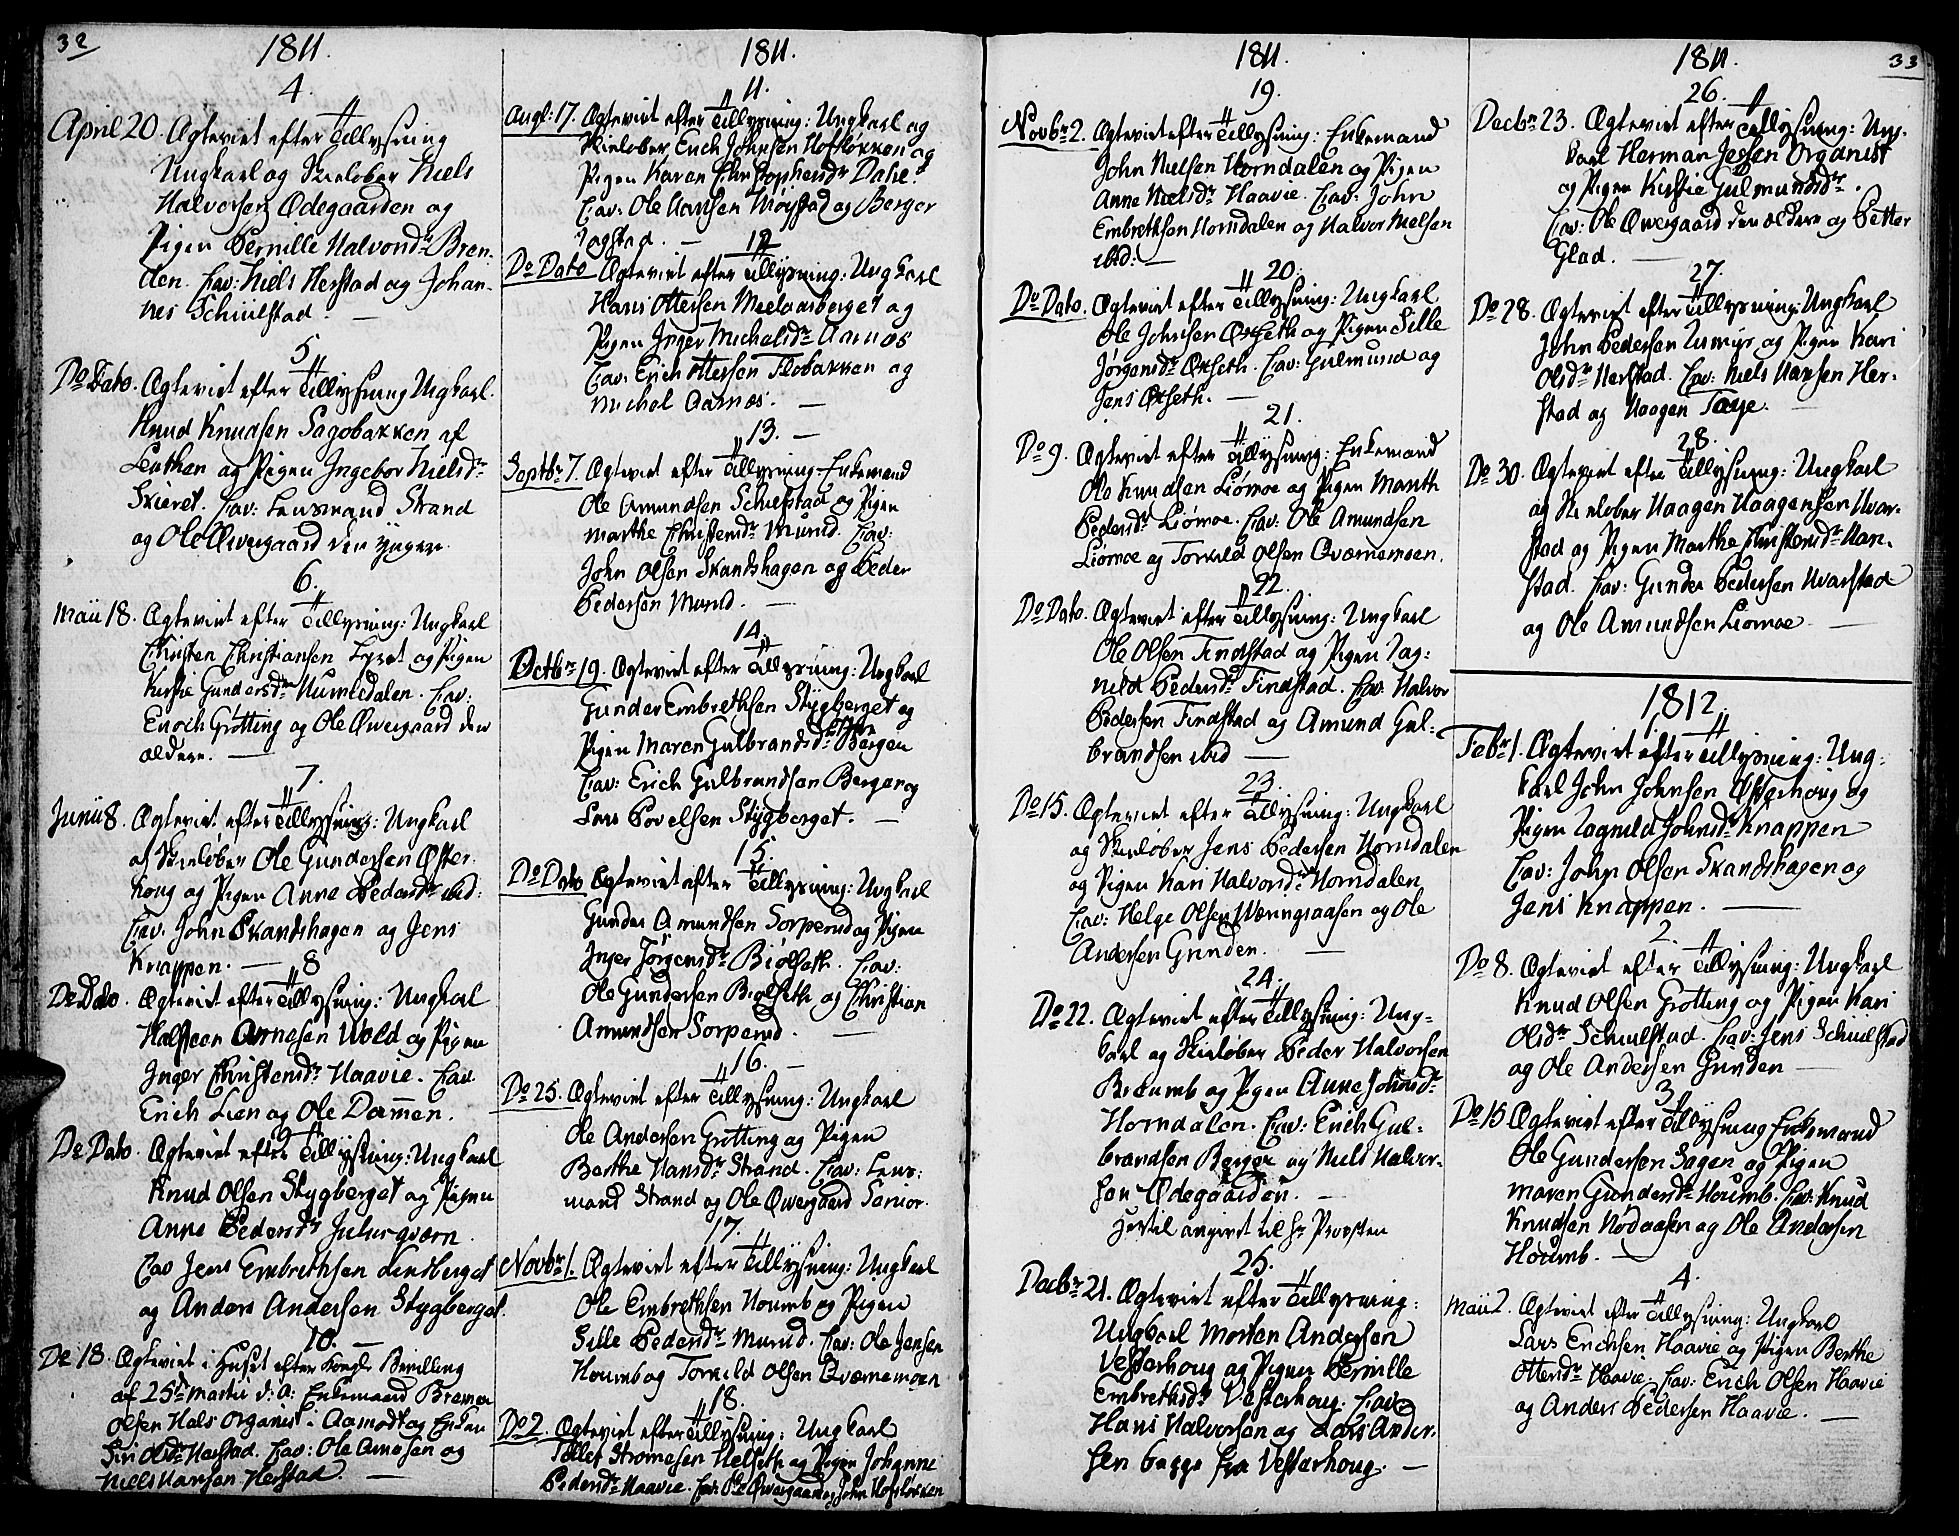 32
1811.
4.
April 20. Ægteviet efter # Tillysning
Ungkarl og Skieløber Niels
Halvorsen Ødegaarden og
Pigen Pernille Halvorsdr Bren-
den. Cav: Niels Herstad og Johan-
nes Schiulstad. —
5
Do Dato. Ægteviet efter # Tillysning Ungkarl.
Knud Knudsen Sagobakken af
Leuthen og Pigen Ingebor Nielsdr
Skieret. Cav: Lensmand Strand
og Ole Øvergaard den yngere.
6.
Maii 18. Ægteviet efter # Tillysning: Ungkarl
Christen Christiansen og Pigen
Kirstie Gundersdr Humledalen. Cav:
Enoch Grøtting og Ole Øvergaard den
ældere. —
7.
Junii 8. Ægteviet efter # Tillysning: Ungkarl
og Skieløber Ole Gundersen Øster-
houg og Pigen Anne Pedersdr ibid:
Cav: John Skandshagen og Jens
Knappen. —
8
Do Dato. Ægteviet efter # Tillysning: Ungkarl
Halsteen Arnesen Wold og Pigen
Inger Christensdr Haavie. Cav.
Erich Lien og Ole Dammen.
Do Dato. Ægteviet efter # Tillysning: Ungkarl
Knud Olsen Stygberget og Pigen
Anne Pedersdr Julusqværn.
Cav Jens Embrethsen Lindberget
og Anders Andersen Stygberget.
10. —
Do 18. Ægteviet i Huset efter Kongl. Bevilling
af 25de Martii d: a: Enkemand Bremer
Olsen Hals Organist i Aamodt og Enken
Siri Olsdr Herstad. Cav: Ole Arnesen og
Niels Hansen Herstad. —
1811.
11.
Augl: 17. Ægteviet efter # Tillysning: Ungkarl og
Skieløber Erich Johnsen Hofsløkken og
Pigen Karen Christophersdr Dahl.
Cav: Ole Hansen Møistad og Berger
Jogstad. —
12
Do Dato Ægteviet efter # Tillysning: Ungkarl
Hans Ottersen Meelaasberget og
Pigen Inger Michelsdr Aarnæs
Cav: Erich Ottersen Flobakken og
Michel Aarnæs. —
13. —
Septbr 7. Ægteviet efter # Tillysning Enkemand
Ole Amundsen Schiefstad og Pigen
Marthe Christensdr Mund. Cav:
John Olsen Skandshagen og Peder
Pedersen Mund. —
14.
Octbr 19. Ægteviet efter # Tillysning: Ungkarl
Gunder Embrethsen Stygberget og
Pigen Maren Gulbrandsdr Bergen
Cav: Erich Gulbrandsen Berger og
Lars Povelsen Stygberget. —
15.
Do Dato Ægteviet efter # Tillysning: Ungkarl
Gunder Amundsen Sorperud og Pigen
Inger Jørgensdr Biølseth. Cav:
Ole Gundersen Biølseth og Christian
Amundsen Sorperud. —
16. —
Do 25. Ægteviet efter # Tillysning: Ungkarl
Ole Andersen Grøtting og Pigen
Berthe Hansdr Strand. Cav: Lens-
mand Strand og Ole Øvergaard Senior.
17.
Novbr 1. Ægteviet efter # Tillysning: Ungkarl
Ole Embrethsen Houmb og Pigen
Sille Pedersdr Mund. Cav: Ole Jensen
Houmb og Torkild Olsen Qværnemoen
18.
Do 2. Ægteviet efter # Tillysning: Ungkarl
Tollef Stromesen Helseth og Pigen Johanne
Pedersdr Haavie. Cav: Ole Øvergaard og John Hofsløkken
1811.
19.
Novbr 2. Ægteviet efter # Tillysning: Enkemand
John Nielsen Horndalen og Pigen
Anne Nielsdr Haavie. Cav: John
Embrethsen Horndalen og Halvor Nielsen
ibid: —
20.
Do Dato. Ægteviet efter # Tillysning: Ungkarl
Ole Johnsen Øxseth og Pigen Sille
Jørgensdr Øxseth. Cav: Gulmund og
Jens Øxseth. —
21.
Do 9. Ægteviet efter # Tillysning: Enkemand
Ole Knudsen Liømoe og Pigen Marth
Pedersdr Liømoe. Cav: Ole Amundsen
Liømoe og Torkild Olsen Qværnemoen.
22.
Do Dato. Ægteviet efter # Tillysning: Ungkarl
Ole Olsen Findstad og Pigen Rag-
nild Pedersdr Findstad. Cav: Halvor
Pedersen Findstad og Amund Gul-
brandsen ibid —
23.
Do 15. Ægteviet efter # Tillysning: Ungkarl
og Skieløber Jens Pedersen Horndalen
og Pigen Kari Halvorsdr Horndalen
Cav: Helge Olsen Væringsaasen og Ole
Andersen Grinden. —
24.
Do 22. Ægteviet efter # Tillysning: Ung-
karl og Skieløber Peder Halvorsen
Bieumb og Pigen Anne Johnsdr
Horndalen. Cav: Erich Gul-
brandsen Berger og Niels Halvor-
sen Ødegaarden. —
hertil angivet til Hr Provsten
25.
Decbr 21. Ægteviet efter # Tillysning:
Ungkarl Morten Andersen
Vesterhoug og Pigen Pernille
Embrethsdr Vesterhoug. Cav:
Hans Halvorsen og Lars Ander-
sen begge fra Vesterhoug. —
1811.
33
26.
Decbr 23. Ægteviet efter # Tillysning: Ung-
karl Herman Jessen Organist
og Pigen Kirstie Gulmundsdr.
Cav: Ole Øvergaard den ældere og Petter
Glad. —
27.
Do 28. Ægteviet efter # Tillysning: Ungkarl
John Pedersen og Pigen Kari
Olsdr Herstad. Cav: Niels Hansen Her-
stad og Haagen Taxe. —
28.
Do 30. Ægteviet efter # Tillysning: Ungkarl
og Skieløber Haagen Haagensen Hvar-
stad og Pigen Marthe Christensdr Han-
stad. Cav: Gunder Pedersen Hvarstad
og Ole Amundsen Liømoe. —
1812.
1.
Febr 1. Ægteviet efter # Tillysning: Ung-
karl John Johnsen Østerhoug og
Pigen Ragnild Johnsdr Knappen
Cav: John Olsen Skandshagen og
Jens Knappen. —
2.
Do 8. Ægteviet efter # Tillysning: Ungkarl
Knud Olsen Grøtting og Pigen Kari
Olsdr Schiulstad. Cav: Jens Schiulstad
og Ole Andersen Grinden —
3
Do 15 Ægteviet efter # Tillysning Enkemand
Ole Gundersen Sagen og Pigen
Maren Gundersdr Houmb. Cav: Knud
Knudsen Nødaasen og Ole Andersen
Houmb. —
4.
Maii 2. Ægteviet efter # Tillysning: Ungkarl
Lars Erichsen Haavie og Pigen Berthe
Ottersdr Haavie. Cav: Erich Olsen Haavie
og Anders Pedersen Haavie. —